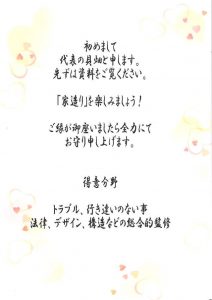 初めまして
代表の貝畑と申します。
先ずは資料をご覧ください。
「家造り」を楽しみましょう！
ご縁が御座いましたら全力にて
お守り申し上げます。
得意分野
トラブル、行き違いのない事
法律、デザイン、構造などの総合的監修